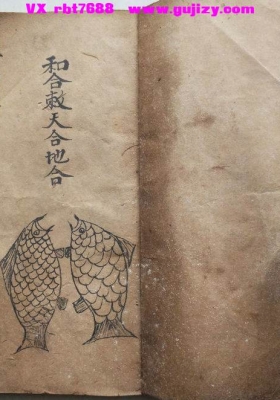 VX rbt7688 www.gujizy.com
和合敕天合地合